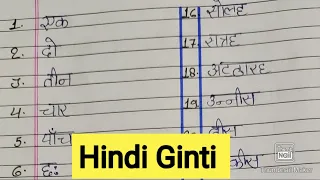 1. एक
2. दो
3. तीन
4. चार
5. पाँच
6. छः
16. सोलह
17. सत्रह
18. अट्ठारह
19. उन्नीस
बीस
Hindi Ginti